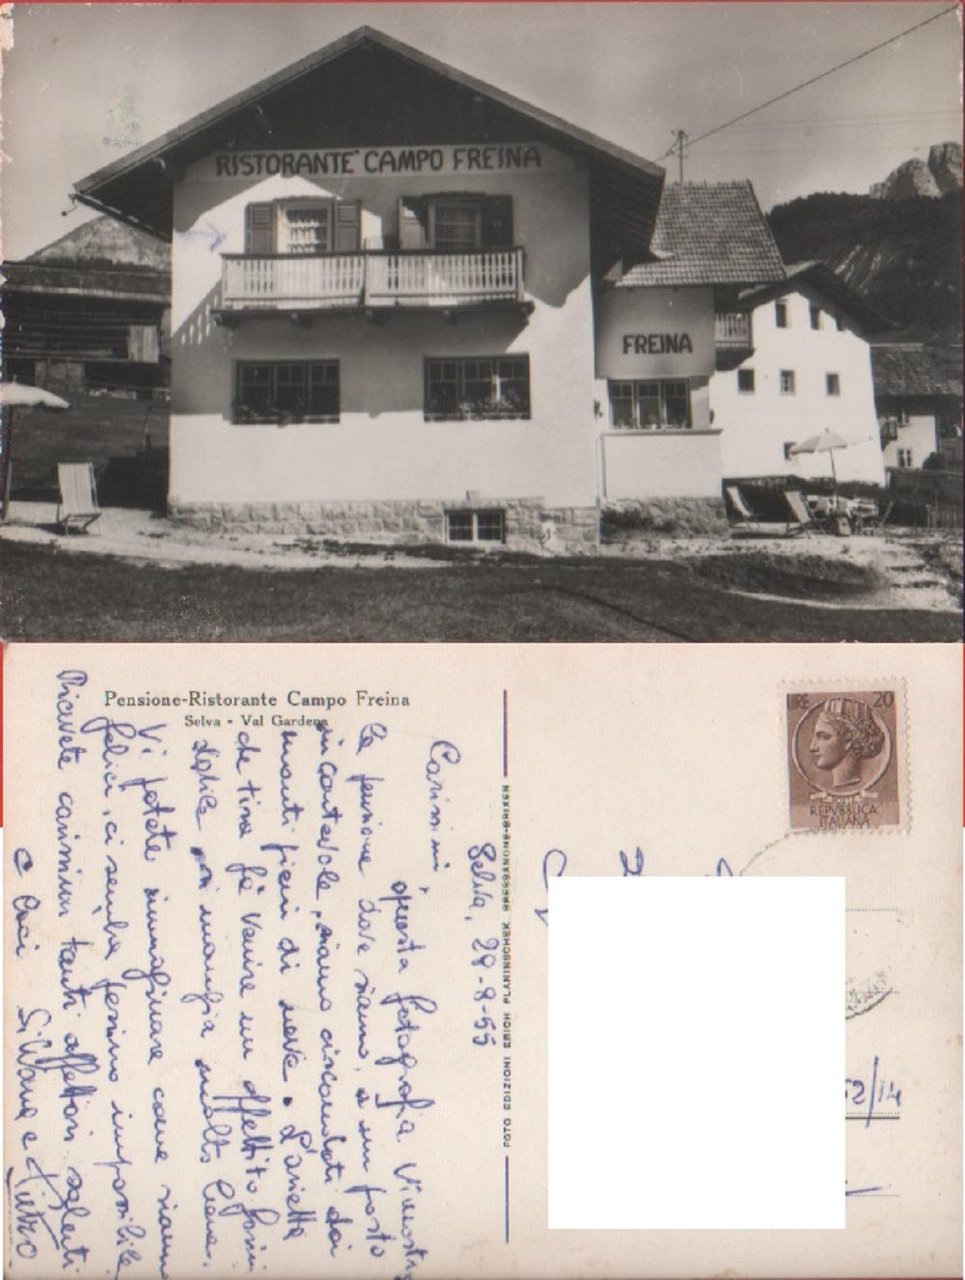 RISTORANTE CAMPO FREINA
FREINA
Pensione-Ristorante Campo Freina
Selva - Val Gardena
Selva, 28-8-55
Carissimi,
questa fotografia Vi mostra
la pensione dove siamo, è un posto
incantevole, siamo circondati dai
monti pieni di neve. L'arietta
che tira fà venire un appetito formi
dabile si mangia molto bene.
Vi potete immaginare come siamo
felici, ci sembra persino impossibile
Ricevete carissimi tanti affettuosi saluti
e baci Silvana e Pietro
FOTO EDIZIONI ERICH PLANINSCHEK BRESSANONE-BRIXEN
LIRE 20
REPVBBLICA
ITALIANA
52/14